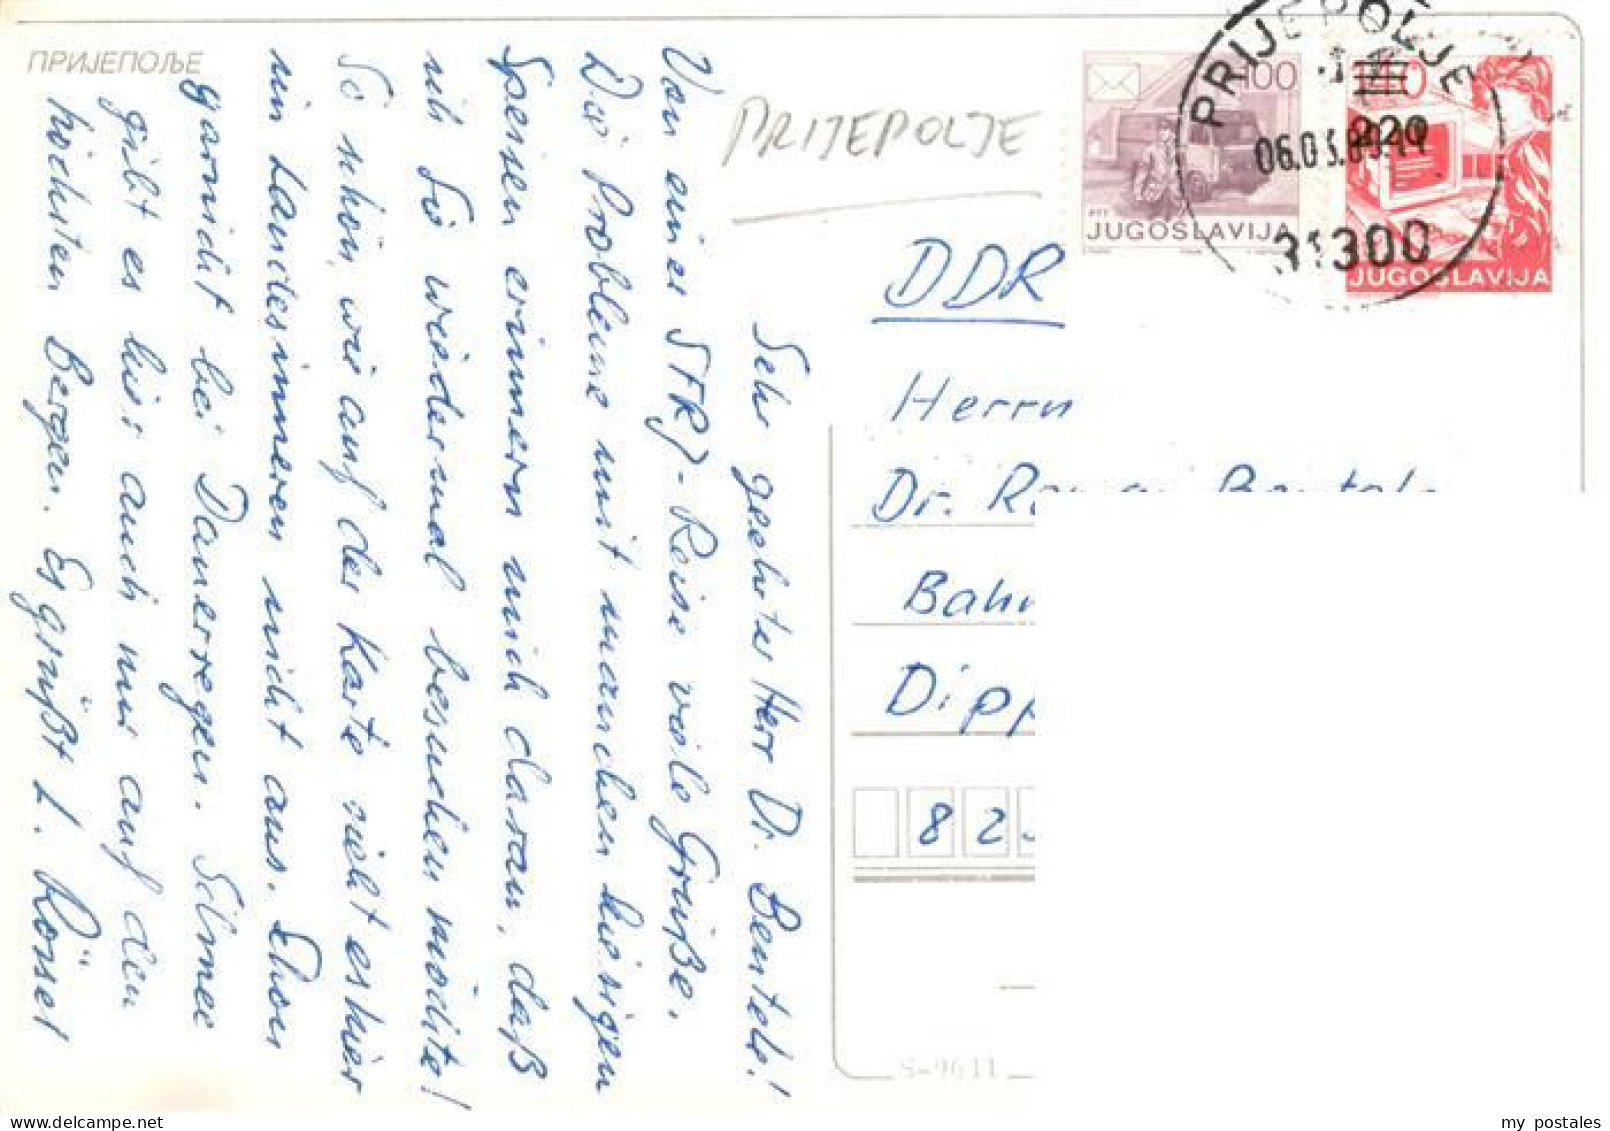 ПРИЈЕПОЉЕ
Sehr geehrter Herr Dr. Bentele!
Von einer SFRJ-Reise viele Grüße.
Die Probleme mit manchen hiesigen
Speisen erinnern mich daran, daß
ich Sie wiedermal besuchen möchte!
So schön, wie auf der Karte sieht es hier
im Landesinneren nicht aus. Schon
garnicht bei Dauerregen. Schnee
gibt es hier auch nur auf den
höchsten Bergen. Es grüßt L. Rösel
PRIJEPOLJE
100
PTT
JUGOSLAVIJA
220
JUGOSLAVIJA
PRIJEPOLJE
31300
DDR
Herrn
Dr.
Bentele
S-9611
my postales